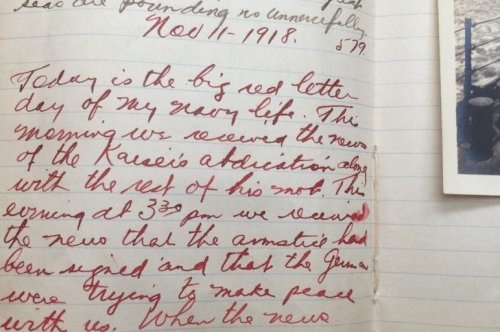 seas are pounding us unmercifully.
Nov 11-1918.
579
Today is the big red letter
day of my navy life. This
morning we received the news
of the Kaiser's abdication along
with the rest of his mob. This
evening at 3³⁰ pm we received
the news that the armstice had
been signed and that the German
were trying to make peace
with us. When the news